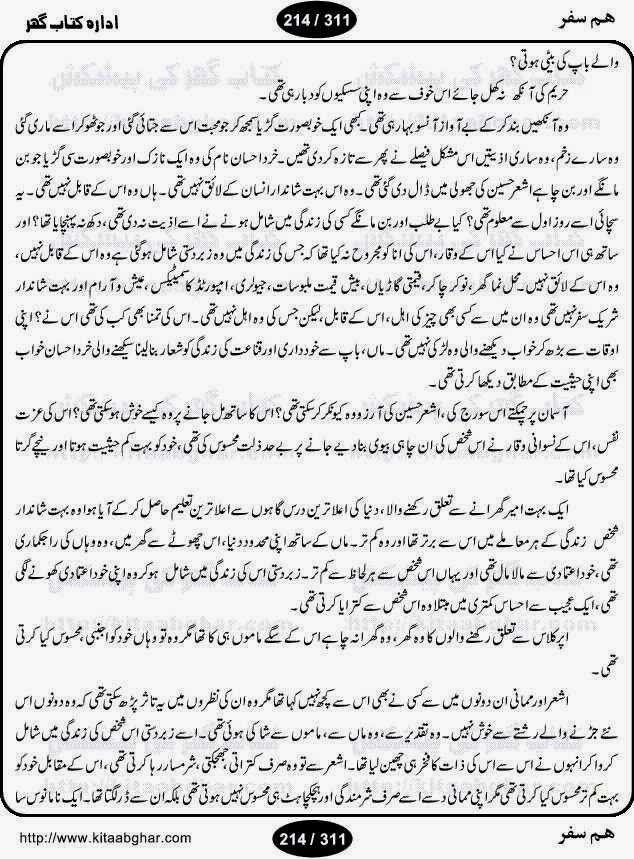 هم سفر
214 / 311
اداره کتاب گھر
والے باپ کی بیٹی ہوتی؟
حریم کی آنکھ نہ کھل جائے اس خوف سے وہ اپنی سسکیوں کو دبا رہی تھی۔
وہ آنکھیں بند کر کے بے آواز آنسو بہا رہی تھی۔ کبھی ایک خوبصورت گڑیا سمجھ کر جو محبت اس سے جتائی گئی اور جو ٹھوکر اسے ماری گئی
وہ سارے زخم، وہ ساری اذیتیں اس مشکل فیصلے نے پھر سے تازہ کر دی تھیں۔ خرد احسان نام کی وہ ایک نازک اور خوبصورت سی گڑیا جو بن
مانگے اور بن چاہے اشعر حسین کی جھولی میں ڈال دی گئی تھی۔ وہ اس بہت شاندار انسان کے لائق نہیں تھی۔ ہاں وہ اس کے قابل نہیں تھی۔ یہ
سچائی اسے روز اول سے معلوم تھی؟ کیا بے طلب اور بن مانگے کسی کی زندگی میں شامل ہونے نے اسے اذیت نہ دی تھی، دکھ نہ پہنچایا تھا؟ اور
ساتھ ہی اس احساس نے کیا اس کے وقار، اس کی انا کو مجروح نہ کیا تھا کہ جس کی زندگی میں وہ زبردستی شامل ہو گئی ہے وہ اس کے قابل نہیں،
وہ اس کے لائق نہیں۔ محل نما گھر، نوکر چاکر، قیمتی گاڑیاں، بیش قیمت ملبوسات، جیولری، امپورٹڈ کاسمیٹیکس، عیش و آرام اور بہت شاندار
شریک سفر نہیں تھی وہ ان میں سے کسی بھی چیز کی اہل، اس کے قابل، لیکن جس کی وہ اہل نہیں تھی۔ اس کی تمنا بھی کب کی تھی اس نے؟ اپنی
اوقات سے بڑھ کر خواب دیکھنے والی وہ لڑکی نہیں تھی۔ ماں، باپ سے خودداری اور قناعت کی زندگی کو شعار بنا لینا سیکھنے والی خرد احسان خواب
بھی اپنی حیثیت کے مطابق دیکھا کرتی تھی۔
آسمان پر چمکتے اس سورج کی، اشعر حسین کی آرزو وہ کیونکر کر سکتی تھی؟ اس کا ساتھ مل جانے پر وہ کیسے خوش ہو سکتی تھی؟ اس کی عزت
نفس، اس کے نسوانی وقار نے اس شخص کی ان چاہی بیوی بنا دیے جانے پر بے حد ذلت محسوس کی تھی، خود کو بہت کم حیثیت ہوتا اور نیچے گرتا
محسوس کیا تھا۔
ایک بہت امیر گھرانے سے تعلق رکھنے والا، دنیا کی اعلا ترین درس گاہوں سے اعلا ترین تعلیم حاصل کر کے آیا ہوا وہ بہت شاندار
شخص زندگی کے ہر معاملے میں اس سے برتر تھا اور وہ کم تر۔ ماں کے ساتھ اپنی محدود دنیا، اس چھوٹے سے گھر میں، وہ وہاں کی راجکماری
تھی، خود اعتمادی سے مالا مال تھی اور یہاں اس شخص سے ہر لحاظ سے کم تر۔ زبردستی اس کی زندگی میں شامل ہو کر وہ اپنی خود اعتمادی کھونے لگی
تھی، ایک عجیب سے احساس کمتری میں مبتلا وہ اس شخص سے کترایا کرتی تھی۔
اپر کلاس سے تعلق رکھنے والوں کا وہ گھر، وہ گھرانہ چاہے اس کے سگے ماموں ہی کا تھا مگر وہ تو وہاں خود کو اجنبی، محسوس کیا کرتی
تھی۔
اشعر اور ممانی ان دونوں میں سے کسی نے بھی اس سے کچھ نہیں کہا تھا مگر وہ ان کی نظروں میں یہ تاثر پڑھ سکتی تھی کہ وہ دونوں اس
نئے جڑنے والے رشتے سے خوش نہیں۔ وہ تقدیر سے، وہ ماں سے، ماموں سے شاکی ہوئی تھی۔ اسے زبردستی اس شخص کی زندگی میں شامل
کروا کر انہوں نے اس سے اس کی ذات کا فخر ہی چھین لیا تھا۔ اشعر سے تو وہ صرف کتراتی، جھجکتی، شرمسار رہا کرتی تھی، اس کے مقابل خود کو
بہت کم تر محسوس کیا کرتی تھی مگر اپنی ممانی سے اسے صرف شرمندگی اور ہچکچاہٹ ہی محسوس نہیں ہوتی تھی بلکہ ان سے ڈر لگتا تھا۔ ایک نامانوس سا
http://www.kitaabghar.com
214 / 311
هم سفر